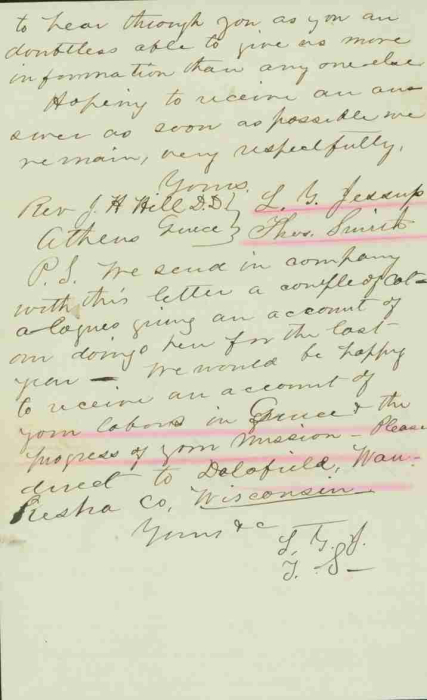 to hear through you as you are
doubtless able to give us more
information than any one else
Hoping to receive an ans
swer as soon as possible we
remain, very respectfully,
Yours.
Rev J. H Hill D.D } L. G. Jessup
Athens Greece } Thos. Smith
P.S. We send in company
with this letter a couple of cat-
alogues giving an account of
our doings here for the last
year — We would be happy
to receive an account of
your labors in Greece & the
progress of your mission — Please
direct to Delafield, Wau-
kesha Co, Wisconsin
Yours &c
L. G. J.
T. S—